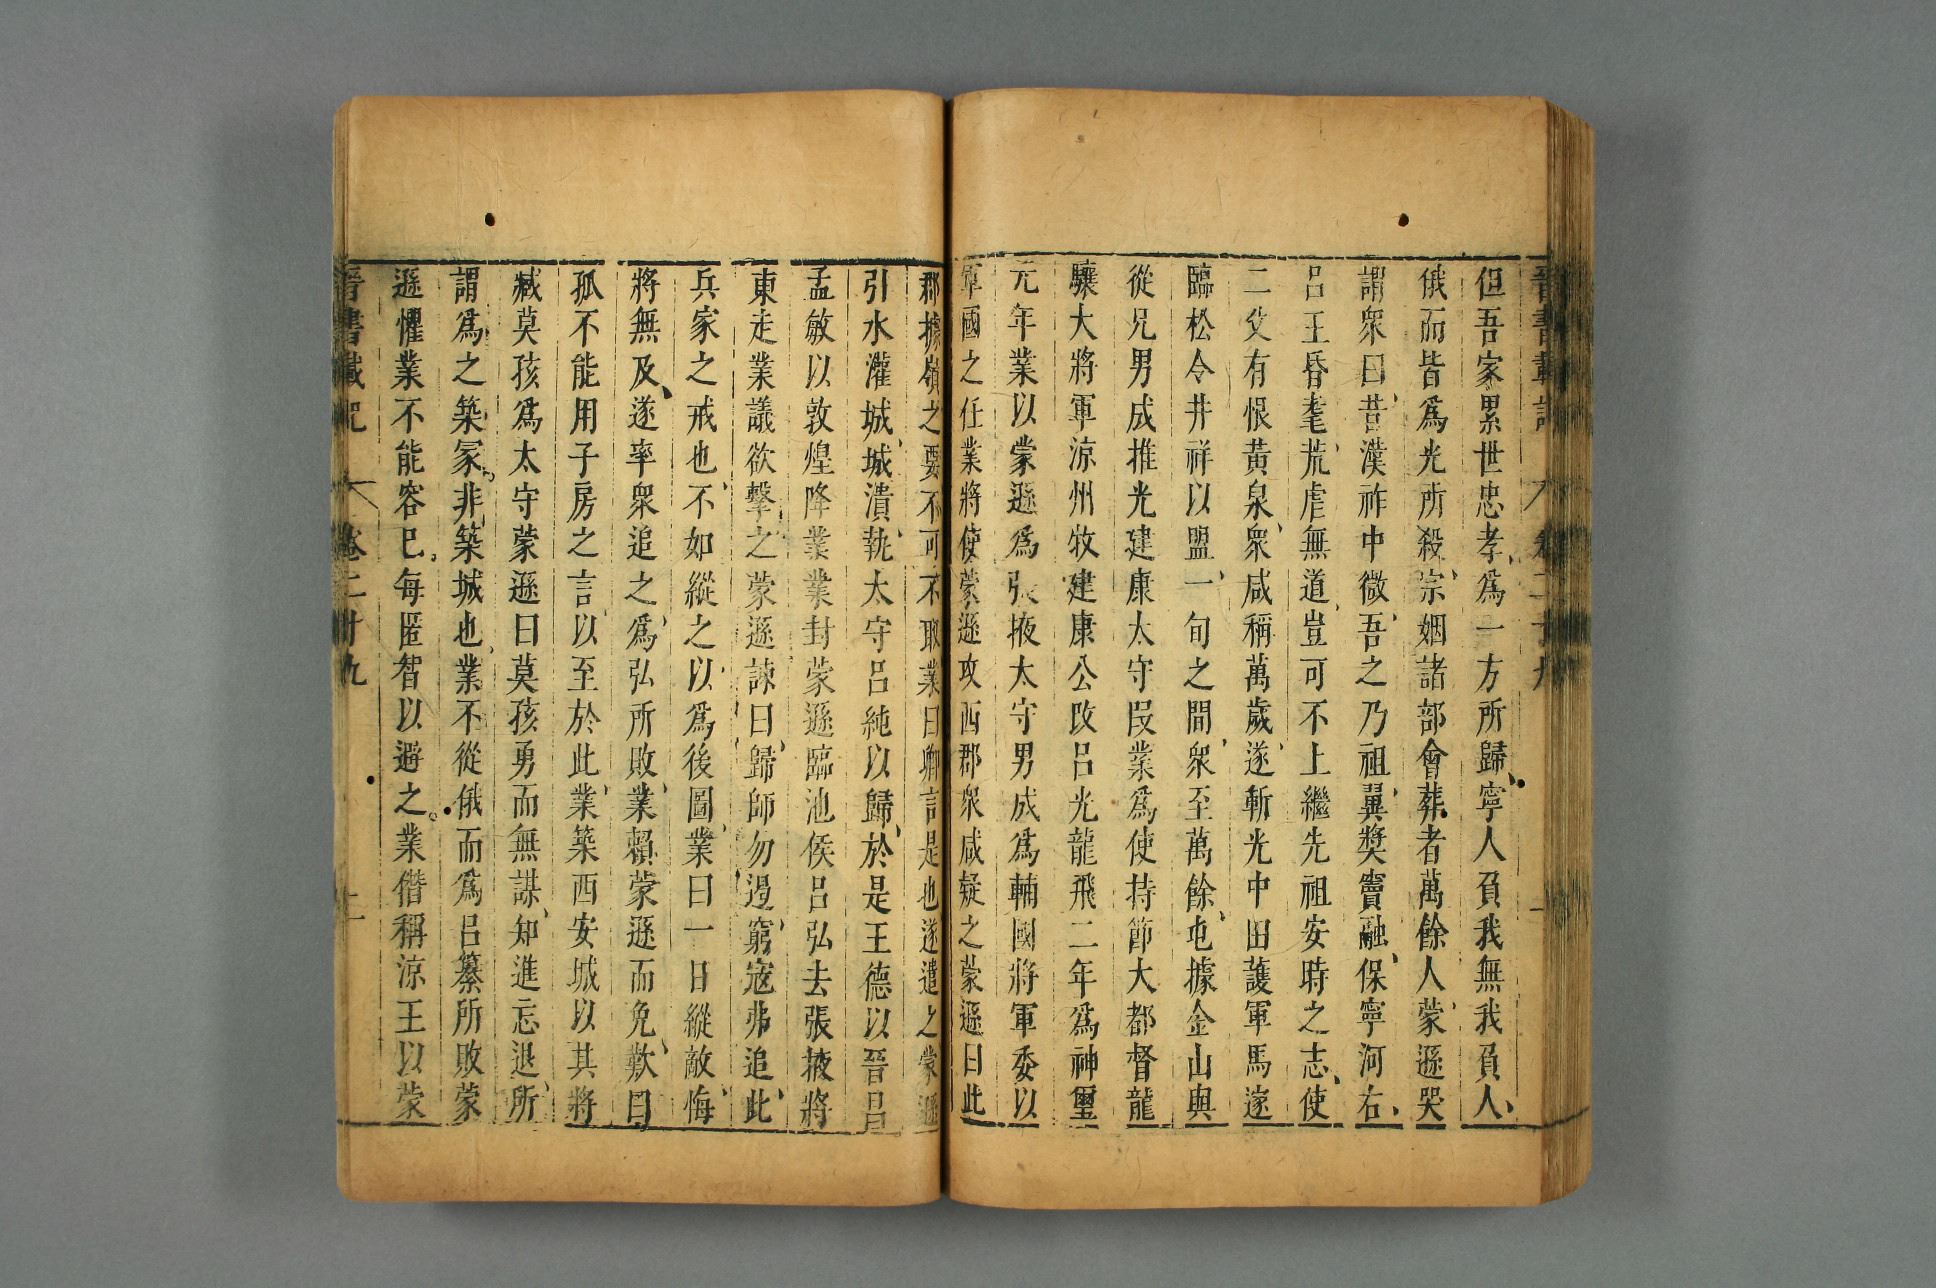 晉書載記 卷二十九 一
但吾家累世忠孝為一方所歸寧人負我無我負人
俄而皆爲光所殺宗姻諸部會葬者萬餘人蒙遜哭
謂衆曰昔漢祚中微吾之乃祖翼奬竇融保寧河右
呂王昏耄荒虐無道豈可不上繼先祖安時之志使
二父有恨黃泉衆咸稱萬歲遂斬光中田護軍馬邃
臨松令井祥以盟一旬之間衆至萬餘屯據金山與
從兄男成推光建康太守段業爲使持節大都督龍
驤大將軍涼州牧建康公改呂光龍飛二年爲神璽
元年業以蒙遜爲張掖太守男成爲輔國將軍委以
軍國之任業將使蒙遜攻西郡衆咸疑之蒙遜曰此
郡據嶺之要不可不取業曰卿言是也遂遣之蒙遜
引水灌城城潰執太守呂純以歸於是王德以晉昌
孟敏以敦煌降業業封蒙遜臨池侯呂弘去張掖將
東走業議欲擊之蒙遜諫曰歸師勿遏窮寇弗追此
兵家之戒也不如縱之以爲後圖業曰一日縱敵悔
將無及遂率衆追之爲弘所敗業賴蒙遜而免歎曰
孤不能用子房之言以至於此業築西安城以其將
臧莫孩爲太守蒙遜曰莫孩勇而無謀知進忘退所
謂爲之築冢非築城也業不從俄而爲呂纂所敗蒙
遜懼業不能容已每匿智以避之業僭稱涼王以蒙
晉書載記 卷二十九 二